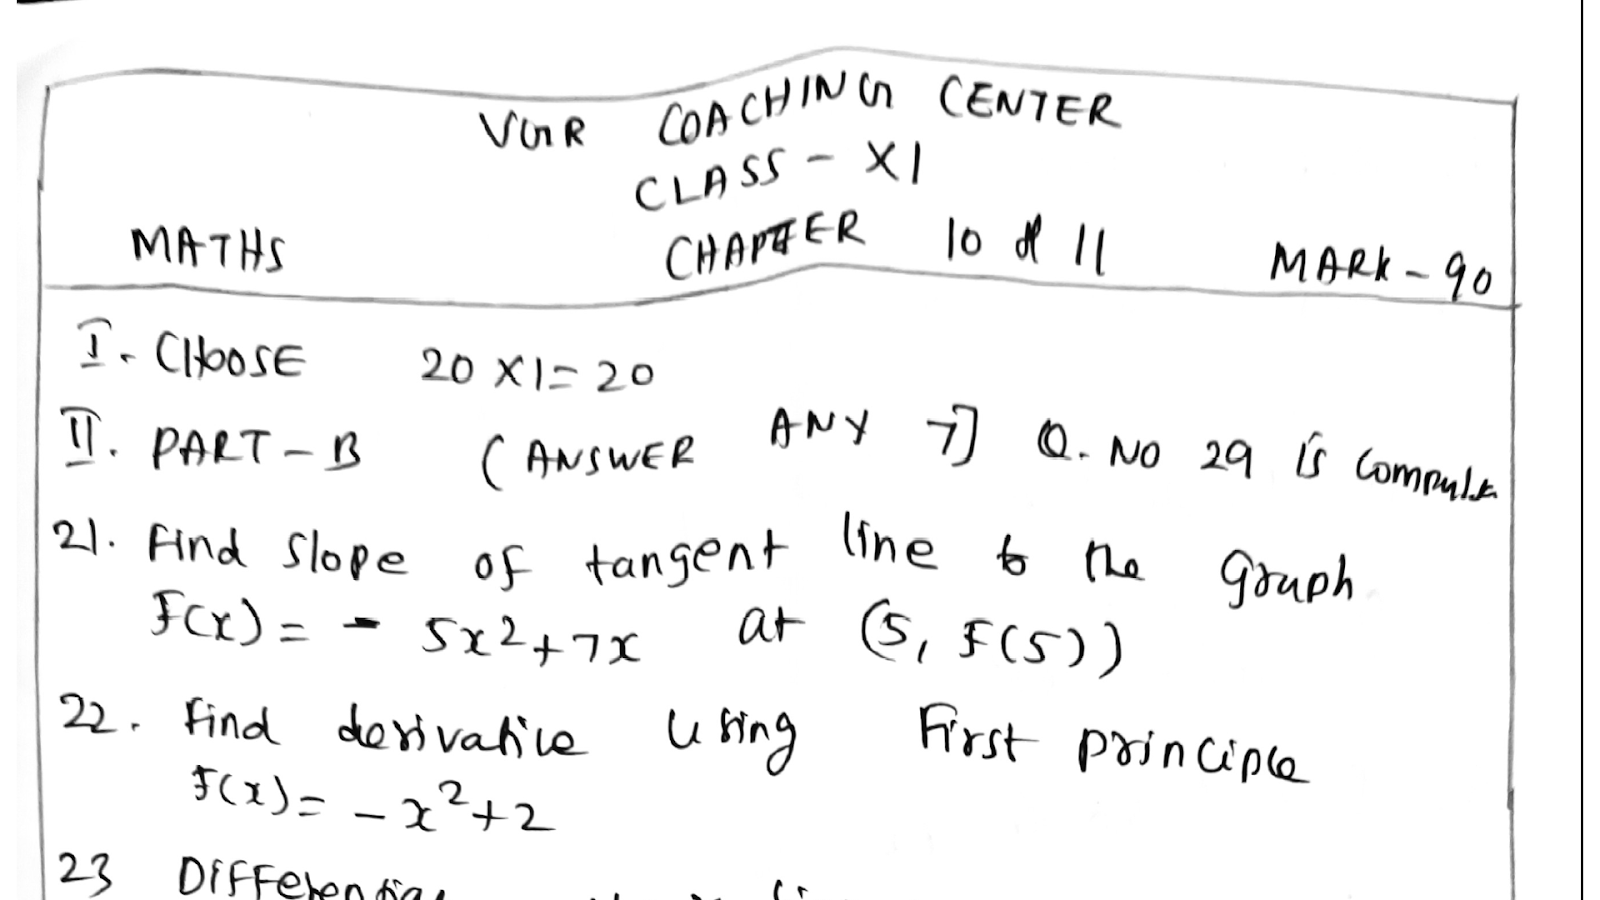 VGR COACHING CENTER
CLASS - XI
MATHS CHAPTER 10 & 11 MARK - 90
I. CHOOSE 20 X 1 = 20
II. PART - B ( ANSWER ANY 7] Q. NO 29 is
21. Find slope of tangent line to the graph
F(x) = - 5x²+7x at (5, F(5))
22. Find derivative using First principle
F(x) = - x²+2
23